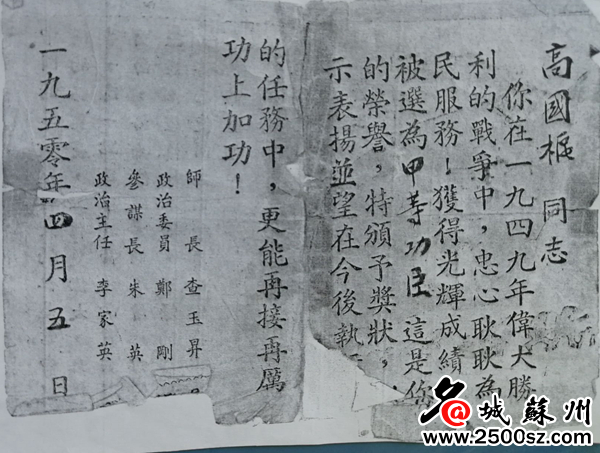 高國柢 同志
你在一九四九年偉大勝
利的戰爭中，忠心耿耿為
民服務！獲得光輝成績，
被選為甲等功臣 這是你
的榮譽，特頒予獎狀，
示表揚並望在今後執
的任務中，更能再接再厲
功上加功！
師長 查玉昇
政治委員 鄭剛
參謀長 朱英
政治主任 李家英
一九五零年四月五日
名@城蘇州
www.2500sz.com